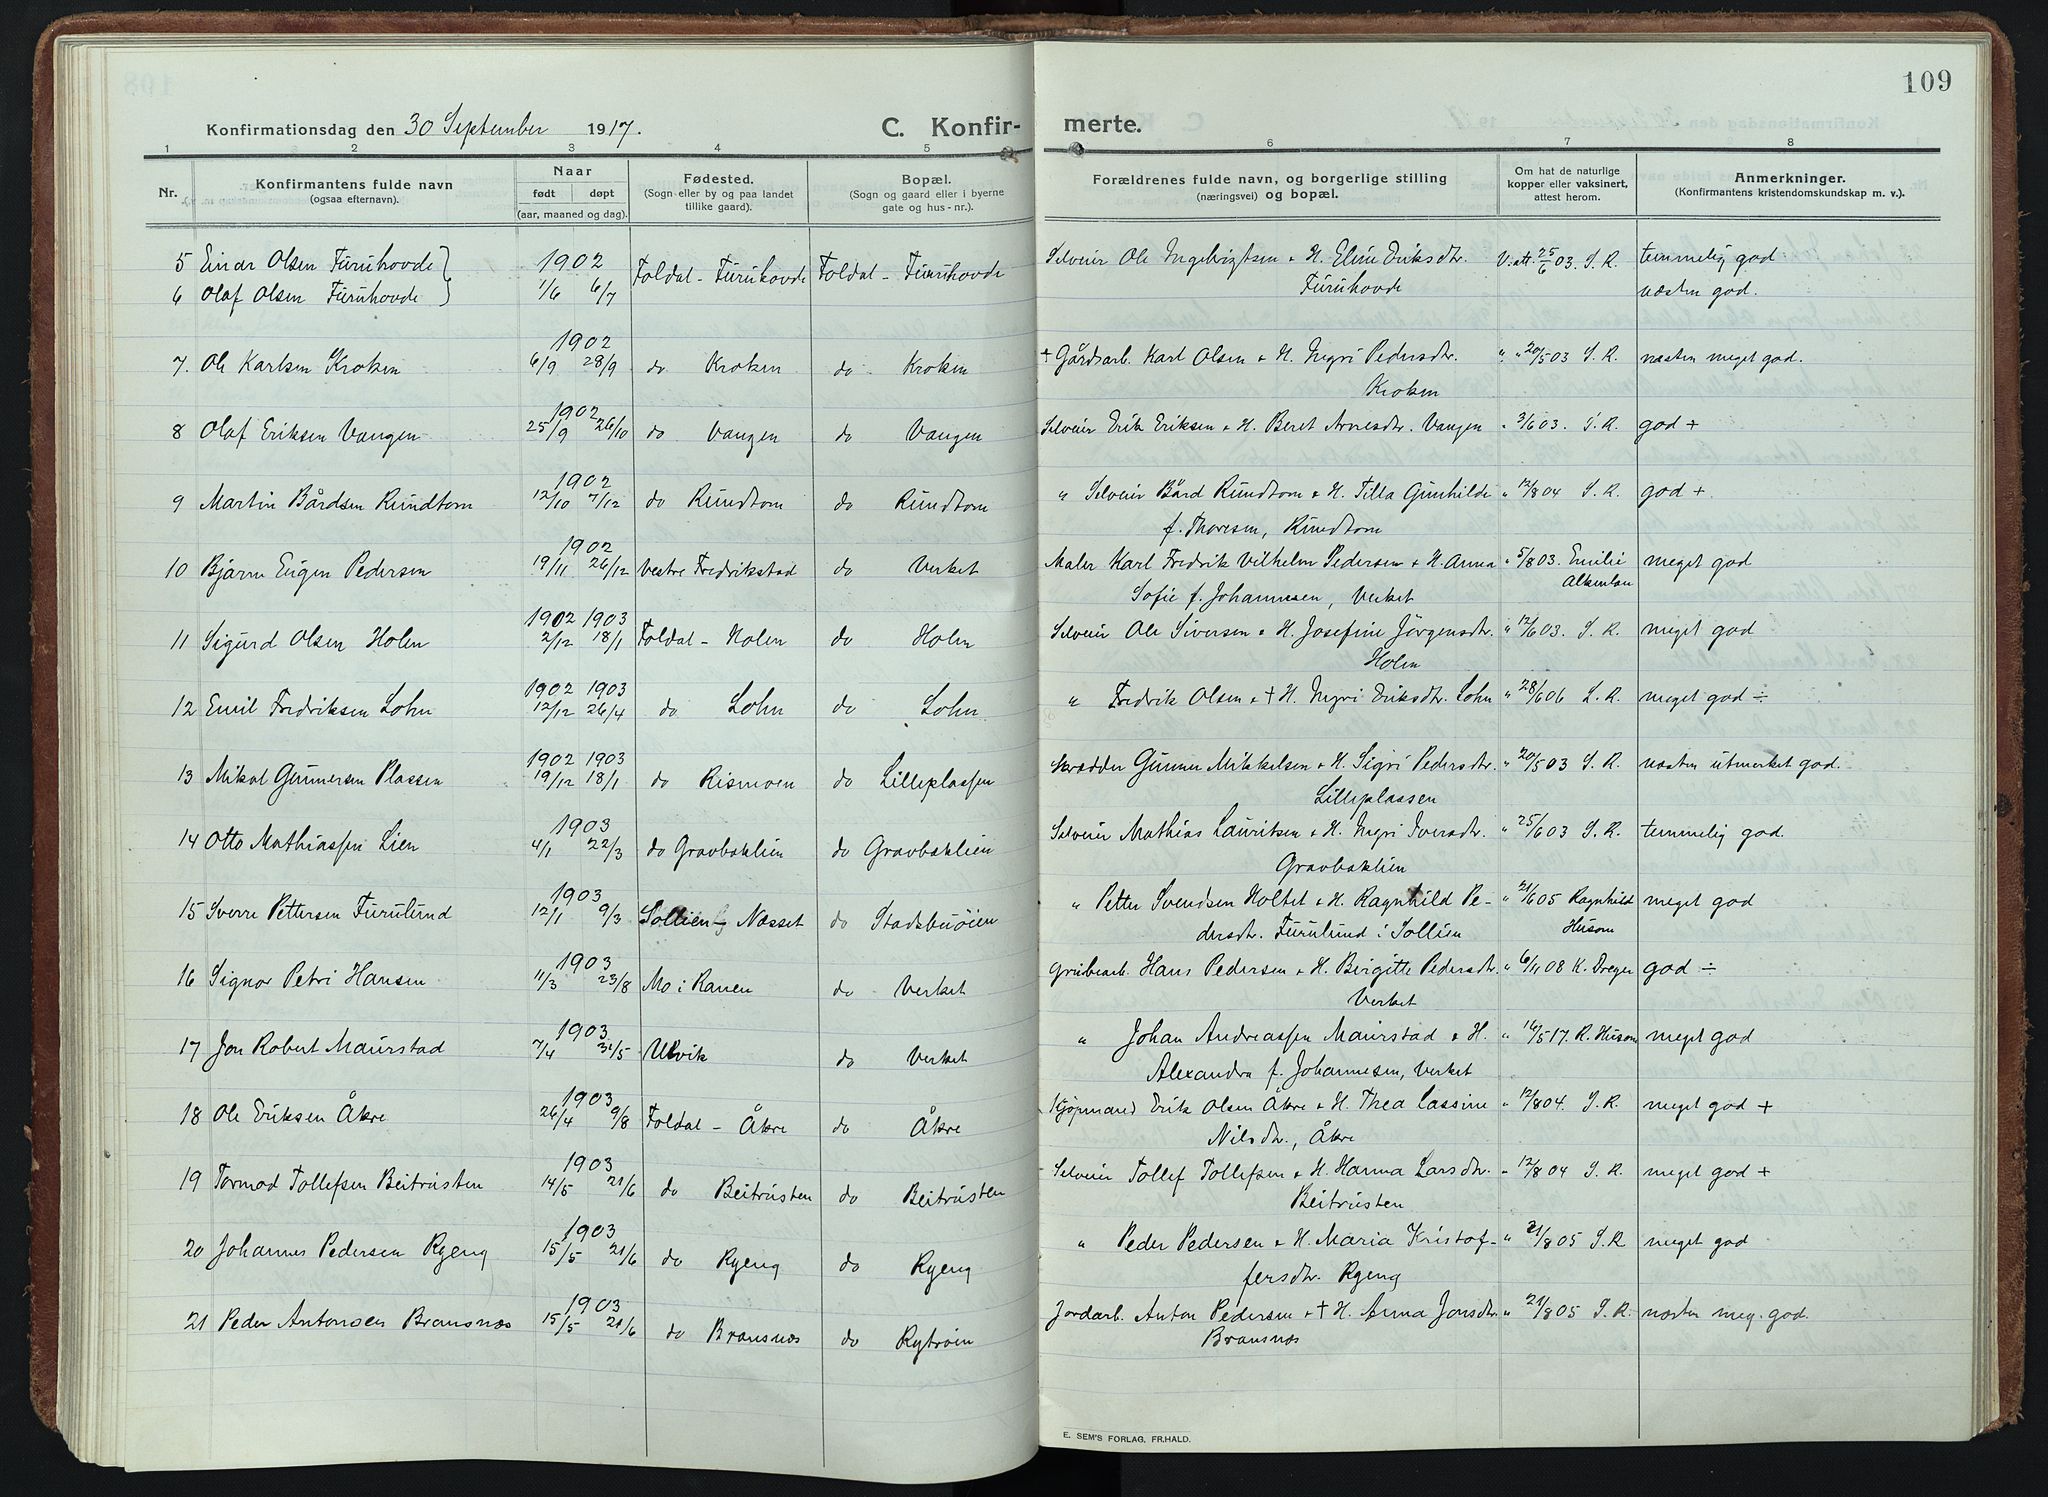 109
Konfirmationsdag den 30 September 1917.
C. Konfir- merte.
1 2 3 4 5 6 7 8
Nr.
Konfirmantens fulde navn
(ogsaa efternavn).
Naar
født døpt
(aar, maaned og dag).
Fødested.
(Sogn eller by og paa landet
tillike gaard).
Bopæl.
(Sogn og gaard eller i byerne
gate og hus-nr.).
Forældrenes fulde navn, og borgerlige stilling
(næringsvei) og bopæl.
Om hat de naturlige
kopper eller vaksinert,
attest herom.
Anmerkninger.
(Konfirmantens kristendomskundskap m. v.).
5 Einar Olsen Furuhovde } 1902 Foldal - Furuhovde Foldal - Furuhovde Selveier Ole Ingebrigtsen & H. Eline Eriksdtr. V. att. 25/6 03. S. R. temmelig god
6 Olaf Olsen Furuhovde } 1/6 6/7 Furuhovde næsten god.
1902
7. Ole Karlsen Kroken 6/9 28/9 do Kroken do Kroken + Gårdsarb. Karl Olsen & H. Ingri Pedersdtr. " " 20/5 03 S. R. næsten meget god.
Kroken
1902
8 Olaf Eriksen Vangen 25/9 26/10 do Vangen do Vangen Selveier Erik Eriksen & H. Beret Arnesdtr. Vangen " 3/6 03. S. R. god +
1902
9 Martin Bårdsen Rundtom 12/10 7/12 do Rundtom do Rundtom " Selveier Bård Rundtom & H. Tilla Gunhilde " 12/8 04 S. R. god +
f. Thoresen, Rundtom
1902
10 Bjarne Eugen Pedersen 19/11 26/12 Vestre Fredrikstad do Verket Maler Karl Fredrik Vilhelm Pedersen & H. Anna " 5/8 03. Emilie meget god
Sofie f. Johannesen, Verket
1902 1903
11 Sigurd Olsen Holen 2/12 18/1 Foldal - Holen do Holen Selveier Ole Siversen & H. Josefine Jörgensdtr. " 12/6 03. S. R. meget god
Holen
1902 1903
12 Emil Fredriksen Lohn 12/12 26/4 do Lohn do Lohn " Fredrik Olsen & + H. Ingri Eriksdtr. Lohn " 28/6 06 S. R. meget god ÷
1902 1903
13 Mikal Gunnersen Plassen 19/12 18/1 do Rismoen do Lilleplassen Skrædder Gunner Mikkelsen & H. Sigri Pedersdtr. " 20/5 03 S. R. næsten utmerket god.
Lilleplassen
1903
14 Otto Mathiassen Lien 4/1 22/3 do Gravbaklien do Gravbaklien Selveier Mathias Lauritsen & H. Ingri Iversdtr. " 25/6 03 S. R. temmelig god.
Gravbaklien
1903
15 Sverre Pettersen Furulund 12/1 9/3 Sollien - Næsset do Stadsbuöien " Petter Svendsen Holtet & H. Ragnhild Pe- " 21/6 05 Ragnhild meget god
dersdtr. Furulund i Sollien Husom
1903
16 Signar Petri Hansen 11/3 23/8 Mo i Ranen do Verket Grubearb. Hans Pedersen & H. Birgitte Pedersdtr. " 6/11 08 K. Dreyer god ÷
Verket
1903
17 Jon Robert Maurstad 7/4 31/5 Ulvik do Verket " Johan Andreassen Maurstad & H. " 16/5 17. R. Husom meget god
Alexandra f. Johannesen, Verket
1903
18 Ole Eriksen Åkre 26/4 9/8 Foldal - Åkre do Åkre Kjöpmand Erik Olsen Åkre & H. Thea Lassine " 12/8 04. S. R. meget god +
Nilsdtr., Åkre
1903
19 Tormod Tollefsen Beitrusten 14/5 21/6 do Beitrusten do Beitrusten Selveier Tollef Tollefsen & H. Hanna Larsdtr. " 12/8 04 S. R. meget god +
Beitrusten
1903
20 Johannes Pedersen Ryeng 15/5 21/6 do Ryeng do Ryeng " Peder Pedersen & H. Maria Kristof- " 21/8 05 S. R meget god
fersdtr. Ryeng
1903
21 Peder Antonsen Bransnæs 15/5 21/6 do Bransnæs do Rytröin Jordarb. Anton Pedersen & + H. Anna Jonsdtr. " 21/8 05 S. R. næsten meg. god.
Bransnæs
E. SEM'S FORLAG, FR.HALD.